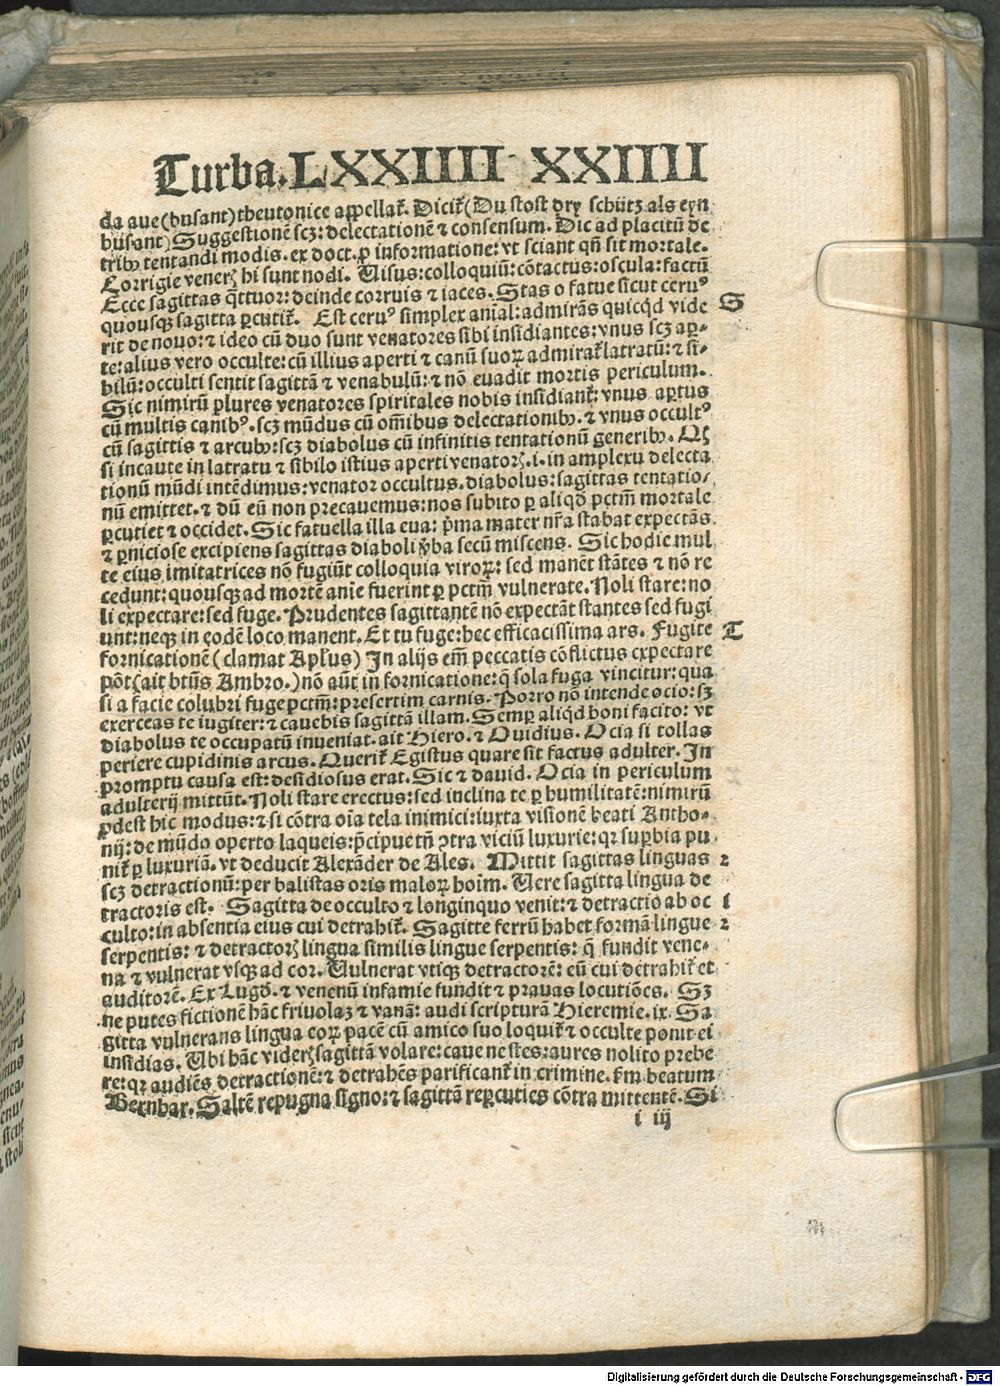 Turba. LXXIIIII XXIIII
da aue (busant) theutonice appellat̃. Dicit̃ (Du stost dry schütz als eyn
busant) Suggestionē scꝫ: delectationē ⁊ consensum. Dic ad placitū de
tribꝰ tentandi modis. ex doct. ꝑ informatione: vt sciant qñ sit mortale.
Corrigie venerꝭ hi sunt nodi. Uisus: colloquiū: cōtactus: oscula: factū
Ecce sagittas q̈ttuor: deinde corruis ⁊ iaces. Stas o fatue sicut ceruꝰ S
quousqꝫ sagitta ꝑcutit̃. Est ceruꝰ simplex anīal: admirās quicqd vide
rit de nouo: ⁊ ideo cū duo sunt venatores sibi insidiantes: vnus scꝫ aper-
te: alius vero occulte: cū illius aperti ⁊ canū suoꝝ admirat̃ latratū: ⁊ si-
bilū: occulti sentit sagittā ⁊ venabulū: ⁊ nō euadit mortis periculum.
Sic nimirū plures venatores spiritales nobis insidiant̃: vnus aꝑtus
cū multis canibꝰ. scꝫ mūdus cū om̄ibus delectationibꝰ. ⁊ vnus occultꝰ
cū sagittis ⁊ arcubꝰ: scꝫ diabolus cū infinitis tentationū generibꝰ. Qꝫ
si incaute in latratu ⁊ sibilo istius aperti venatorꝭ. i. in amplexu delecta
tionū mūdi intēdimus: venator occultus. diabolus: sagittas tentatio-
nū emittet. ⁊ dū eū non precauemus: nos subito ꝑ aliqd pctm̄ mortale
ꝑcutiet ⁊ occidet. Sic fatuella illa eua: ṗma mater nr̄a stabat expectās
⁊ ꝑniciose excipiens sagittas diaboli v̄ba secū miscens. Sic hodie mul
te eius imitatrices nō fugiūt colloquia viroꝝ: sed manēt stātes ⁊ nō re
cedunt: quousqꝫ ad mortē anīe fuerint ꝑ pctm̄ vulnerate. Noli stare: no
li expectare: sed fuge. Prudentes sagittantē nō expectāt stantes sed fugi
unt: neqꝫ in eodē loco manent. Et tu fuge: hec efficacissima ars. Fugite T
fornicationē (clamat Apl̄us) In alijs em̄ peccatis cōflictus expectare
pōt (ait bt̄us Ambro.) nō aūt in fornicatione: q̄ sola fuga vincitur: qua
si a facie colubri fuge pctm̄: presertim carnis. Porro nō intende ocio: sꝫ
exerceas te iugiter: ⁊ cauebis sagittā illam. Semꝑ aliqd boni facito: vt
diabolus te occupatū inueniat. ait Hiero. ⁊ Ouidius. Ocia si tollas
periere cupidinis arcus. Querit̃ Egistus quare sit factus adulter. In
promptu causa est: desidiosus erat. Sic ⁊ dauid. Ocia in periculum
adulterij mittūt. Noli stare erectus: sed inclina te ꝑ humilitatē: nimirū
ꝓdest hic modus: ⁊ si cōtra oīa tela inimici: iuxta visionē beati Antho-
nij: de mūdo operto laqueis: p̄cipue tn̄ ꝯtra viciū luxurie: qꝛ suꝑbia pu
nit̃ ꝑ luxuriā. vt deducit Alexāder de Ales. Mittit sagittas linguas 2
scꝫ detractionū: per balistas oris maloꝝ hoīm. Uere sagitta lingua de
tractoris est. Sagitta de occulto ⁊ longinquo venit: ⁊ detractio ab oc 1
culto: in absentia eius cui detrahit̃. Sagitte ferrū habet formā lingue 2
serpentis: ⁊ detractorꝭ lingua similis lingue serpentis: q̄ fundit vene-
na ⁊ vulnerat vsqꝫ ad cor. Uulnerat vtiqꝫ detractorē: eū cui detrahit̃ et
auditorē. Ex Lugd̄. ⁊ venenū infamie fundit ⁊ prauas locutiōes. Sꝫ
ne putes fictionē hāc friuolaꝫ ⁊ vanā: audi scripturā Hieremie. ix. Sa
gitta vulnerans lingua eoꝝ pacē cū amico suo loquit̃ ⁊ occulte ponit ei
insidias. Ubi hāc viderꝭ sagittā volare: caue ne stes: aures nolito prebe
re: qꝛ audiēs detractionē: ⁊ detrahēs parificant̃ in crimine. s̄m beatum
Bernhar. Saltē repugna signo: ⁊ sagittā reꝑcuties cōtra mittentē. Si
i iij
Digitalisierung gefördert durch die Deutsche Forschungsgemeinschaft - DFG